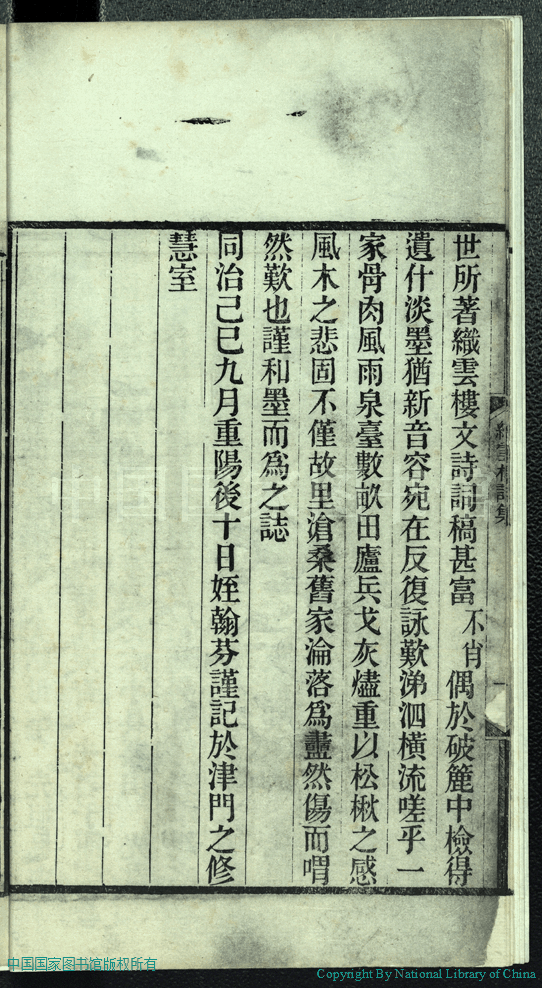 世所著織雲樓文詩詞稿甚富不肖偶於破簏中檢得
遺什淡墨猶新音容宛在反復詠歎涕泗橫流嗟乎一
家骨肉風雨泉臺數畝田廬兵戈灰燼重以松楸之感
風木之悲固不僅故里滄桑舊家淪落爲藎然傷而喟
然歎也謹和墨而爲之誌
同治己巳九月重陽後十日姪翰芬謹記於津門之修
慧室
中国国家图书馆版权所有
Copyright By National Library of China